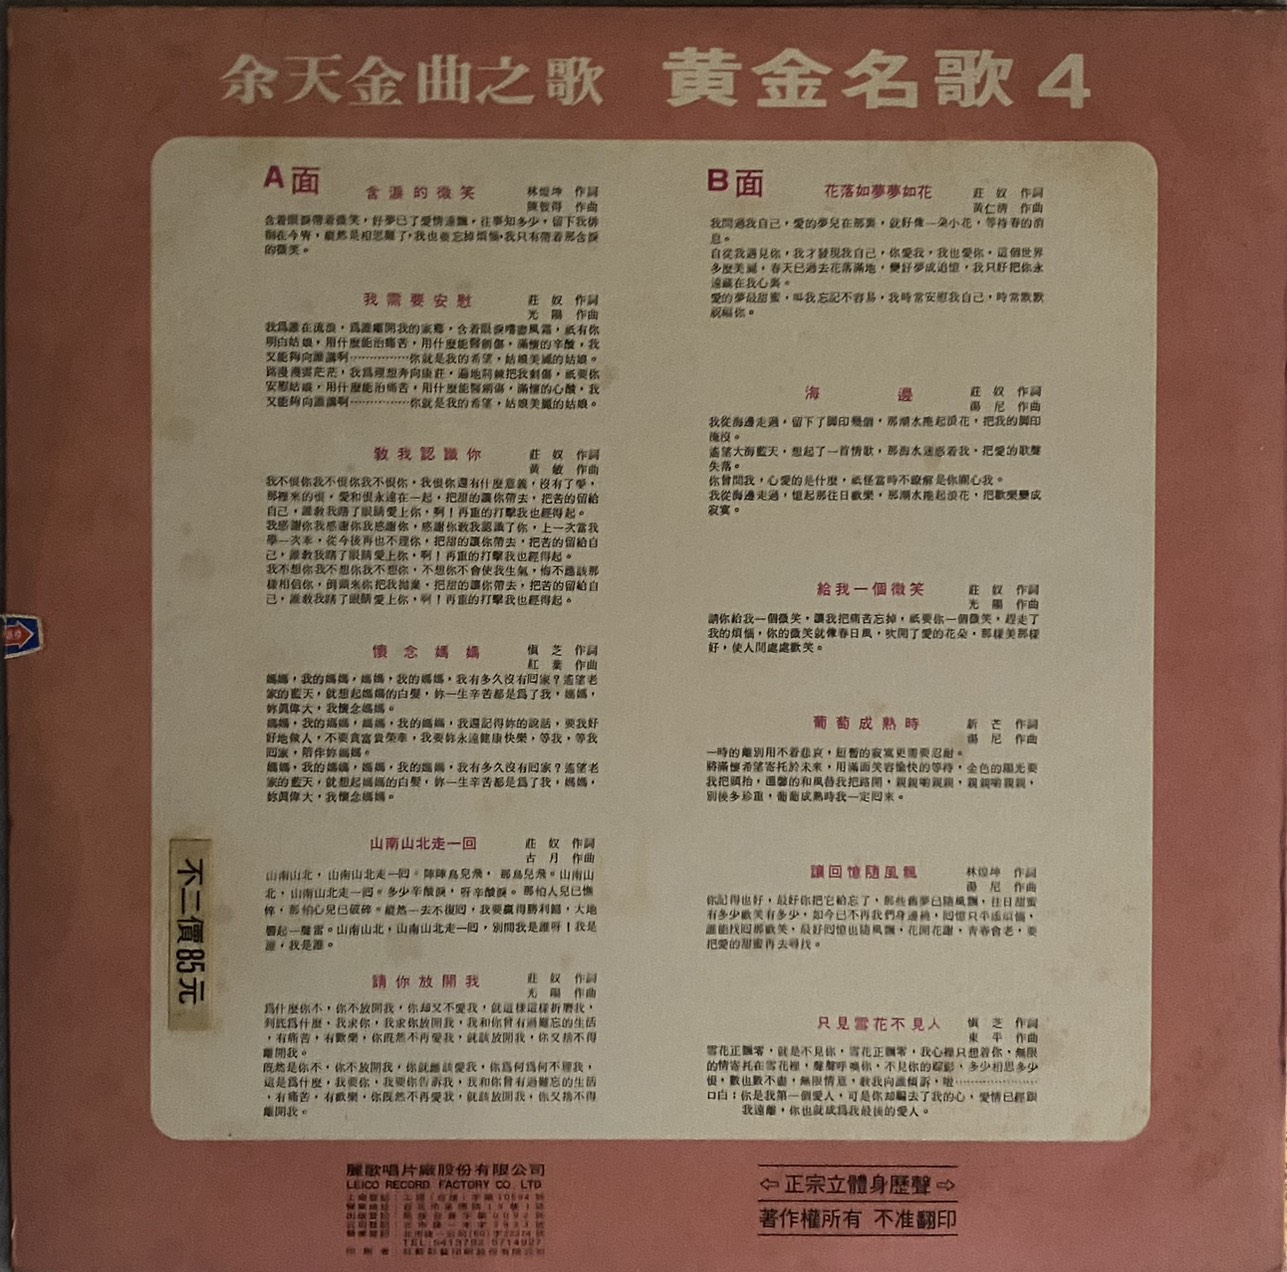 余天金曲之歌 黃金名歌4
A面
含淚的微笑
林煌坤 作詞
陳智得 作曲
含着眼淚帶着微笑，好夢已了愛情遠飄，往事知多少，留下我徘
徊在今宵，縱然是相思難了，我也要忘掉煩惱，我只有帶着那含淚
的微笑。
我需要安慰
莊 奴 作詞
光 陽 作曲
我爲誰在流浪，爲誰離開我的家鄉，含着眼淚嚐盡風霜，祇有你
明白姑娘，用什麼能治痛苦，用什麼能醫創傷，滿懷的辛酸，我
又能夠向誰講啊……………你就是我的希望，姑娘美麗的姑娘。
路漫漫霧茫茫，我爲理想奔向康莊，遍地荊棘把我刺傷，祇要你
安慰姑娘，用什麼能治痛苦，用什麼能醫創傷，滿懷的心酸，我
又能夠向誰講啊……………你就是我的希望，姑娘美麗的姑娘。
教我認識你
莊 奴 作詞
黃 敏 作曲
我不恨你我不恨你我不恨你，我恨你還有什麼意義，沒有了愛，
那裡來的恨，愛和恨永遠在一起，把甜的讓你帶去，把苦的留給
自己，誰教我瞎了眼睛愛上你，啊！再重的打擊我也經得起。
我感謝你我感謝你我感謝你，感謝你教我認識了你，上一次當我
學一次乖，從今後再也不理你，把甜的讓你帶去，把苦的留給自
己，誰教我瞎了眼睛愛上你，啊！再重的打擊我也經得起。
我不想你我不想你我不想你，不想你不會使我生氣，悔不應該那
樣相信你，倒頭來你把我拋棄，把甜的讓你帶去，把苦的留給自
己，誰教我瞎了眼睛愛上你，啊！再重的打擊我也經得起。
懷念媽媽
愼 芝 作詞
紅 葉 作曲
媽媽，我的媽媽，媽媽，我的媽媽，我有多久沒有囘家？遙望老
家的藍天，就想起媽媽的白髮，妳一生辛苦都是爲了我，媽媽，
妳眞偉大，我懷念媽媽。
媽媽，我的媽媽，媽媽，我的媽媽，我還記得妳的說話，要我好
好地做人，不要貪富貴榮華，我要妳永遠健康快樂，等我，等我
囘家，陪伴妳媽媽。
媽媽，我的媽媽，媽媽，我的媽媽，我有多久沒有囘家？遙望老
家的藍天，就想起媽媽的白髮，妳一生辛苦都是爲了我，媽媽，
妳眞偉大，我懷念媽媽。
山南山北走一回
莊 奴 作詞
古 月 作曲
山南山北，山南山北走一囘。陣陣鳥兒飛，那鳥兒飛。山南山
北，山南山北走一囘。多少辛酸淚，呀辛酸淚。那怕人兒已憔
悴，那怕心兒已破碎。縱然一去不復囘，我要贏得勝利歸，大地
響起一聲雷。山南山北，山南山北走一囘，別問我是誰呀！我是
誰，我是誰。
請你放開我
莊 奴 作詞
光 陽 作曲
爲什麼你不，你不放開我，你却又不愛我，就這樣這樣折磨我，
到底爲什麼，我求你，我求你放開我，我和你曾有過難忘的生活
，有痛苦，有歡樂，你既然不再愛我，就該放開我，你又捨不得
離開我。
既然是你不，你不放開我，你就應該愛我，你爲何爲何不理我，
這是爲什麼，我要你，我要你告訴我，我和你曾有過難忘的生活
，有痛苦，有歡樂，你既然不再愛我，就該放開我，你又捨不得
離開我。
B面
花落如夢夢如花
莊 奴 作詞
黃仁清 作曲
我問過我自己，愛的夢兒在那裏，就好像一朵小花，等待春的消
息。
自從我遇見你，我才發現我自己，你愛我，我也愛你，這個世界
多麼美麗，春天已過去花落滿地，變好夢成追憶，我只好把你永
遠藏在我心裏。
愛的夢最甜蜜，叫我忘記不容易，我時常安慰我自己，時常默默
祝福你。
海邊
莊 奴 作詞
湯 尼 作曲
我從海邊走過，留下了脚印幾個，那潮水捲起浪花，把我的脚印
淹沒。
遙望大海藍天，想起了一首情歌，那海水迷惑着我，把愛的歌聲
失落。
你曾問我，心愛的是什麼，祇怪當時不瞭解是你關心我。
我從海邊走過，憶起那往日歡樂，那潮水捲起浪花，把歡樂變成
寂寞。
給我一個微笑
莊 奴 作詞
光 陽 作曲
請你給我一個微笑，讓我把痛苦忘掉，祇要你一個微笑，趕走了
我的煩惱，你的微笑就像春日風，吹開了愛的花朵，那樣美那樣
好，使人間處處歡笑。
葡萄成熟時
新 芒 作詞
湯 尼 作曲
一時的離別用不着悲哀，短暫的寂寞更需要忍耐。
將滿懷希望寄托於未來，用滿面笑容愉快的等待，金色的陽光要
我把頭抬，溫馨的和風替我把路開，親親喲親親，親親喲親親，
別後多珍重，葡萄成熟時我一定囘來。
讓回憶隨風飄
林煌坤 作詞
湯 尼 作曲
你記得也好，最好你把它給忘了，那些舊夢已隨風飄，往日甜蜜
有多少歡笑有多少，如今已不再我們身邊繞，囘憶只平添煩惱，
誰能找囘那歡笑，最好囘憶也隨風飄，花開花謝，青春會老，要
把愛的甜蜜再去尋找。
只見雪花不見人
愼 芝 作詞
東 平 作曲
雪花正飄零，就是不見你，雪花正飄零，我心裡只想着你，無限
的情寄托在雪花裡，聲聲呼喚你，不見你的踪影，多少相思多少
恨，數也數不盡，無限情意，教我向誰傾訴，啦……………
口白：你是我第一個愛人，可是你却騙去了我的心，愛情已經跟
我遠離，你也就成爲我最後的愛人。
不二價85元
麗歌唱片廠股份有限公司
LEICO RECORD FACTORY CO. LTD.
⇦ 正宗立體身歷聲 ⇨
著作權所有 不准翻印